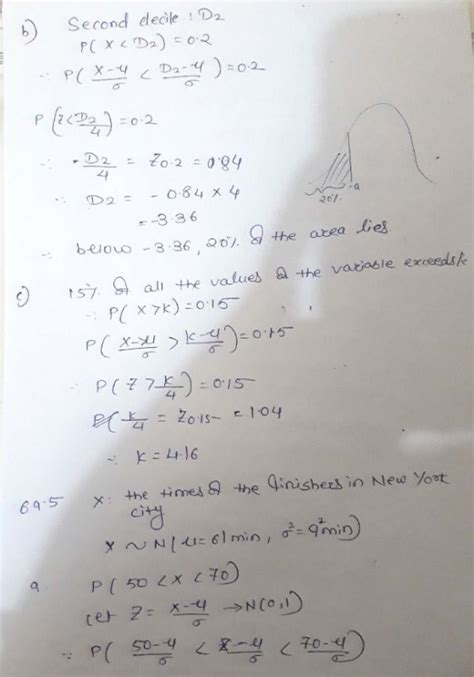 b) Second decile : D2
P( X < D2) = 0.2
∴ P( X-μ/σ < D2-μ/σ ) = 0.2
P( Z < D2/4 ) = 0.2
∴ -D2/4 = Z0.2 = 0.84
∴ D2 = - 0.84 × 4
= -3.36
-a
20%
∴ below -3.36, 20% of the area lies.
c) 15% of all the values of the variable exceeds k
∴ P( X > k) = 0.15
P( X-μ/σ > k-μ/σ ) = 0.15
∴ P( Z > k/4 ) = 0.15
P( k/4 = Z0.15 = 1.04
∴ k = 4.16
69.5 X : the times of the finishers in New York
city
X ~ N( μ = 61 min, σ² = 9² min)
a P( 50 < X < 70)
Let Z = X-μ/σ → N(0,1)
∴ P( 50-μ/σ < X-μ/σ < 70-μ/σ )